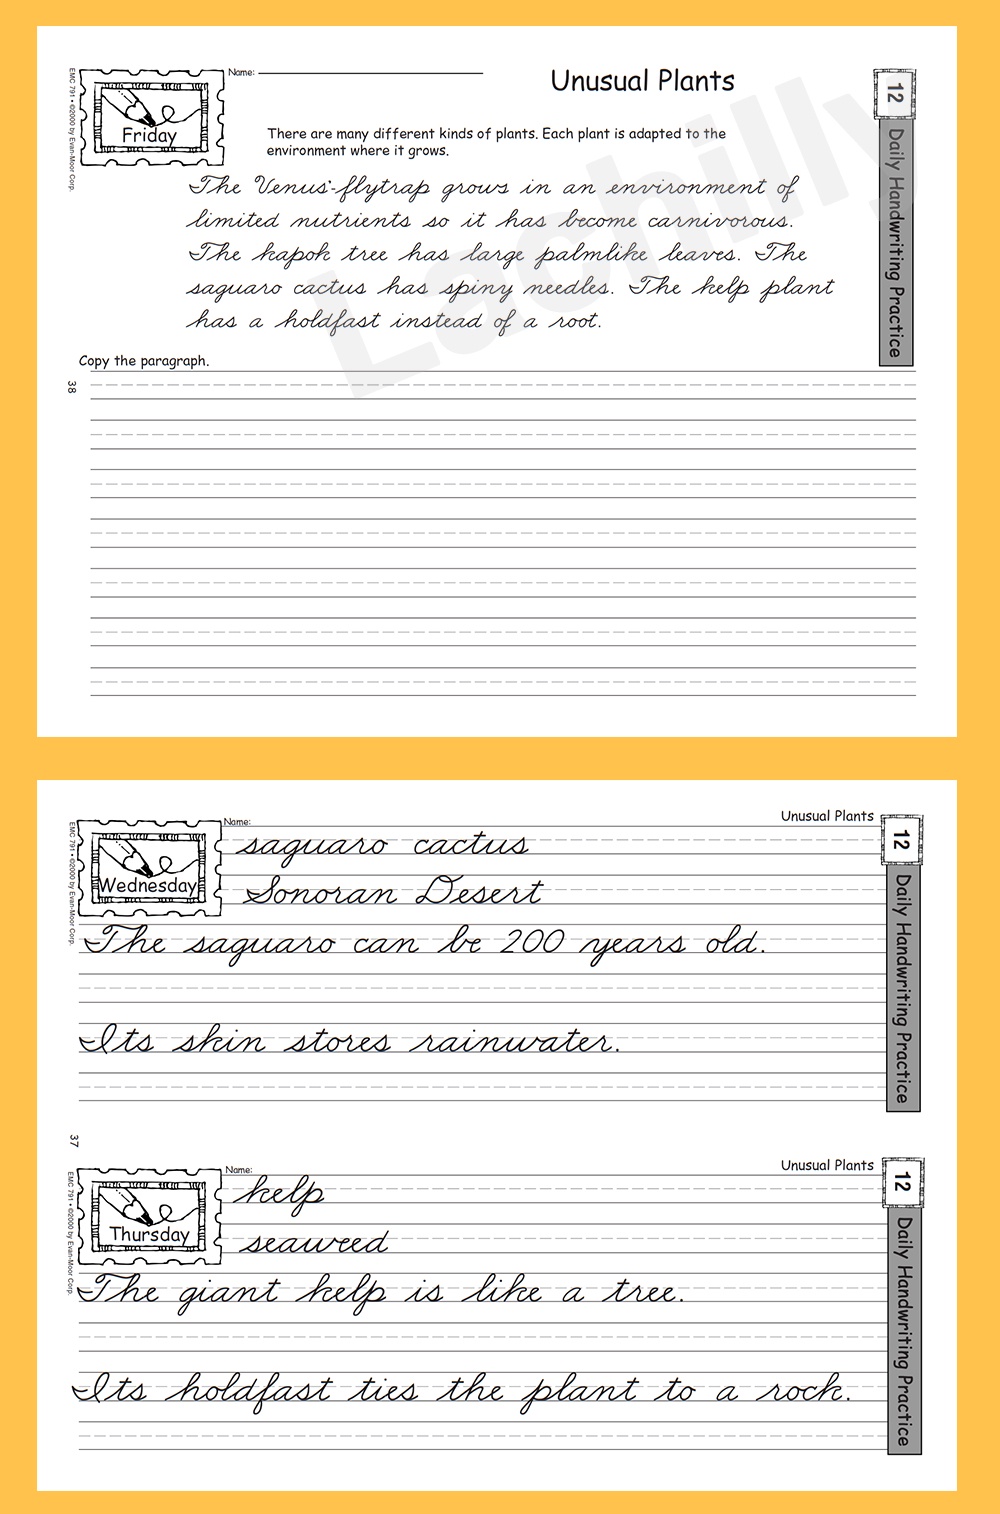 EMC 791 • ©2000 by Evan-Moor Corp.
Friday
Name:
Unusual Plants
12
Daily Handwriting Practice
There are many different kinds of plants. Each plant is adapted to the
environment where it grows.
The Venus'-flytrap grows in an environment of
limited nutrients so it has become carnivorous.
The kapok tree has large palmlike leaves. The
saguaro cactus has spiny needles. The kelp plant
has a holdfast instead of a root.
Lachilly
Copy the paragraph.
38
EMC 791 • ©2000 by Evan-Moor Corp.
Wednesday
Name:
Unusual Plants
12
Daily Handwriting Practice
saguaro cactus
Sonoran Desert
The saguaro can be 200 years old.
Its skin stores rainwater.
37
EMC 791 • ©2000 by Evan-Moor Corp.
Thursday
Name:
Unusual Plants
12
Daily Handwriting Practice
kelp
seaweed
The giant kelp is like a tree.
Its holdfast ties the plant to a rock.